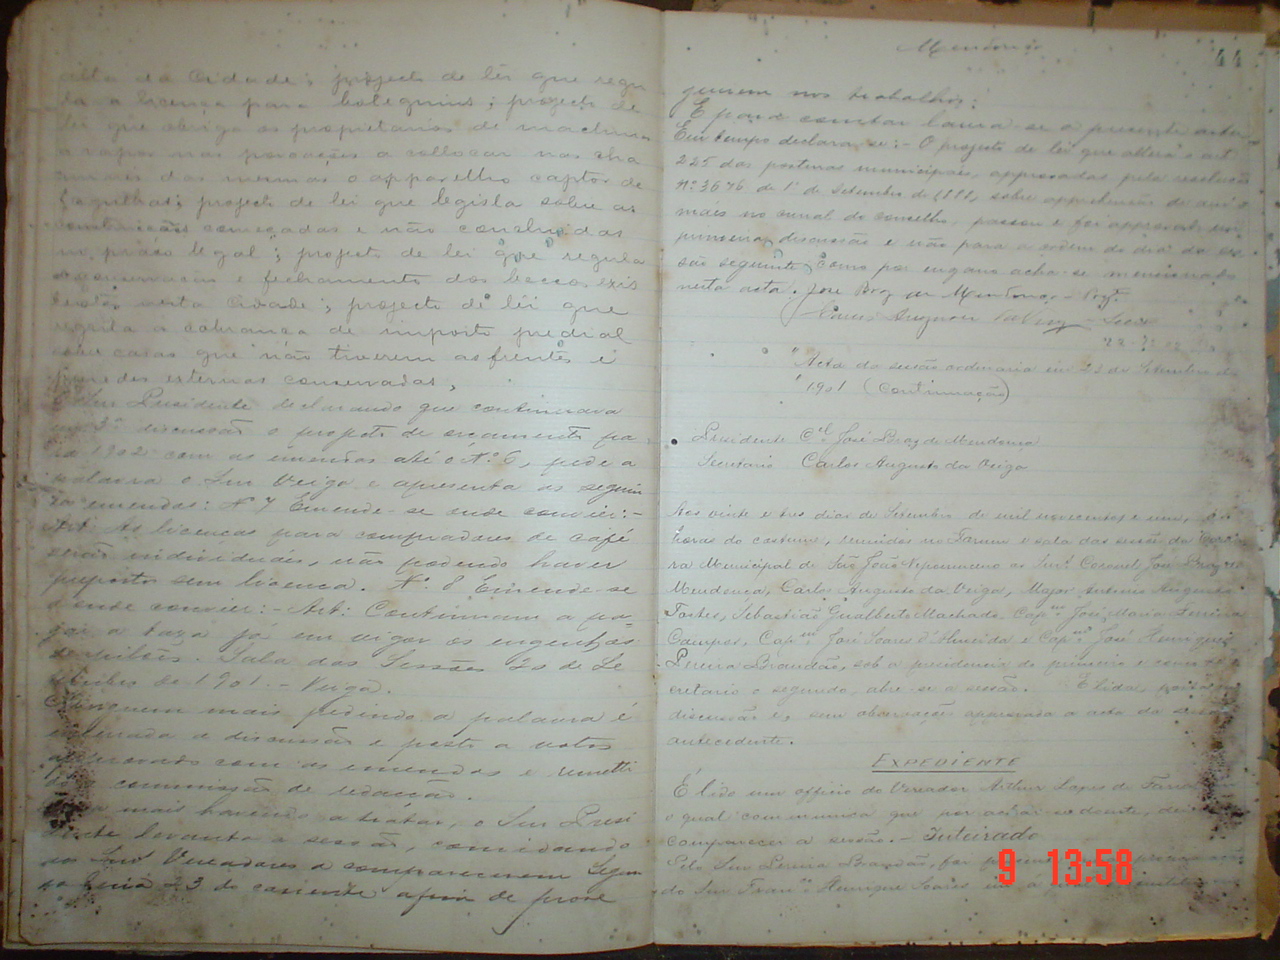 alta da Cidade; projecto de lei que regu
la a licença para botequins; projecto de
lei que obriga os proprietarios de machinas
a vapor nas povoações a collocar nas cha
minés das mesmas o apparelho captor de
fagulhas; projecto de lei que legisla sobre as
construcções começadas e não concluidas
no praso legal; projecto de lei que regula
a conservação e fechamento dos beccos exis
tentes nesta Cidade; projecto de lei que
regula a cobrança de imposto predial
sobre casas que não tiverem as frentes e
paredes externas conservadas.
O Snr Presidente declarando que continuava
em 3ª discussão o projecto de orçamento pa
ra 1902 com as emendas até o Nº 6, pede a
palavra o Snr Veiga e apresenta as seguin
tes emendas: Nº 7 Emende-se onde convier:-
Art: As licenças para compradores de café
serão individuais, não podendo haver
prepostos sem licença. Nº 8 Emende-se
aonde convier:- Art: Continuam a pa-
gar a taxa já em vigor os engenhos
de pilões. Sala das Sessões 20 de Se
tembro de 1901.- Veiga.
Ninguem mais pedindo a palavra é
encerrada a discussão e posto a votos
approvado com as emendas e remetti
do a commissão de redacção.
Nada mais havendo a tratar, o Snr Presi
dente levanta a sessão, convidando
aos Snrs Vereadores a comparecerem Segun
da feira 23 do corrente afim de prose
Mendonça
44
guirem nos trabalhos.
E para constar lavra-se a presente acta.
Em tempo declara-se:- O projecto de lei que altera o art.
225 das posturas municipaes, approvadas pela resolução
Nº 3676 de 1º de Setembro de 1888, sobre apprehensão de ani
maes no curral do conselho, passou e foi approvado em
primeira discussão e não para a ordem do dia da ses
são seguinte, como por engano acha-se mencionado
nesta acta. José Braz de Mendonça - Prezt.
Carlos Augusto da Veiga - Secr
Acta da sessão ordinaria em 23 de Setembro de
1901 (Continuação)
Presidente Cel. José Braz de Mendonça
Secretario Carlos Augusto da Veiga
Aos vinte e tres dias de Setembro de mil novecentos e um, as
horas do costume, reunidos no Forum e sala das sessões da Cama
ra Municipal de São João Nepomuceno os Snrs. Coronel José Braz de
Mendonça, Carlos Augusto da Veiga, Major Antonio Augusto
Fortes, Sebastião Gualberto Machado, Capm José Maria Ferreira
Campos, Capm José Soares d'Almeida e Capm José Henriques
Pereira Brandão, sob a presidencia do primeiro e como se
cretario o segundo, abre-se a sessão. E' lida, posta em
discussão e, sem observação approvada a acta da sessão
antecedente.
EXPEDIENTE
É lido um officio do Vereador Arthur Lopes de Faria
o qual communica que por achar-se doente, deixa
comparecer a sessão. - Inteirado
Pelo Snr Pereira Brandão, foi
do Snr Franco Henrique Soares
9 13:58